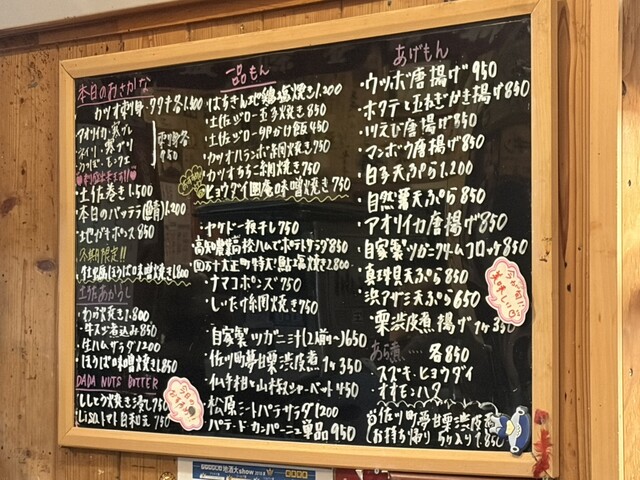 本日のおさかな
カツオ刺身・タタキ各1.300
アオリイカ・寒ブレ
寒ブリ
刺身各
950
土佐巻き1.500
・本日のバッテラ(鯖)1.200
・地ガキポン酢 850
冬期限定!!
ほうば味噌焼き1.800
土佐あかうし
わら焼き1.800
・牛スジ煮込み850
・生ハムサラダ1200
・ほうば味噌焼き1.850
DADA NUTS BUTTER
・ししとう焼き浸し750
トマト白和え 750
一品もん
・はちきん地鶏塩焼き1.200
・土佐ジロー玉子焼き850
・土佐ジロー卵かけ飯450
・カツオハランボ網焼き750
・カツオちちこ網焼き750
・ヒョウダイ田庵味噌焼き750
・ヤケド一夜干し750
・高知農業高校ハムでポテトサラダ850
・四万十大正町特大!鮎塩焼き2.800
・ナマコポンズ 750
・しいたけ網焼き750
・自家製ツガニ汁(2人前〜)650
・佐川町夢甘栗渋皮煮 1ヶ350
・仏手柑と山椒シャーベット450
・松原ミートパテサラダ1200
・パテ・ド・カンパーニュ単品950
あげもん
・ウツボ唐揚げ950
・ホタテと玉ねぎかき揚げ850
・川えび唐揚げ850
・マンボウ唐揚げ850
・白子天ぷら1.200
・自然薯天ぷら 850
・アオリイカ唐揚げ850
・自家製ツガニクリームコロッケ850
・真珠貝天ぷら 850
・浜アザミ天ぷら650
・栗渋皮煮揚げ1ヶ350
あら煮‥‥各850
・スズキ・ヒョウダイ
・オオモンハタ
佐川町夢甘栗渋皮煮
お持ち帰り 5ヶ入り1.850
地酒大show